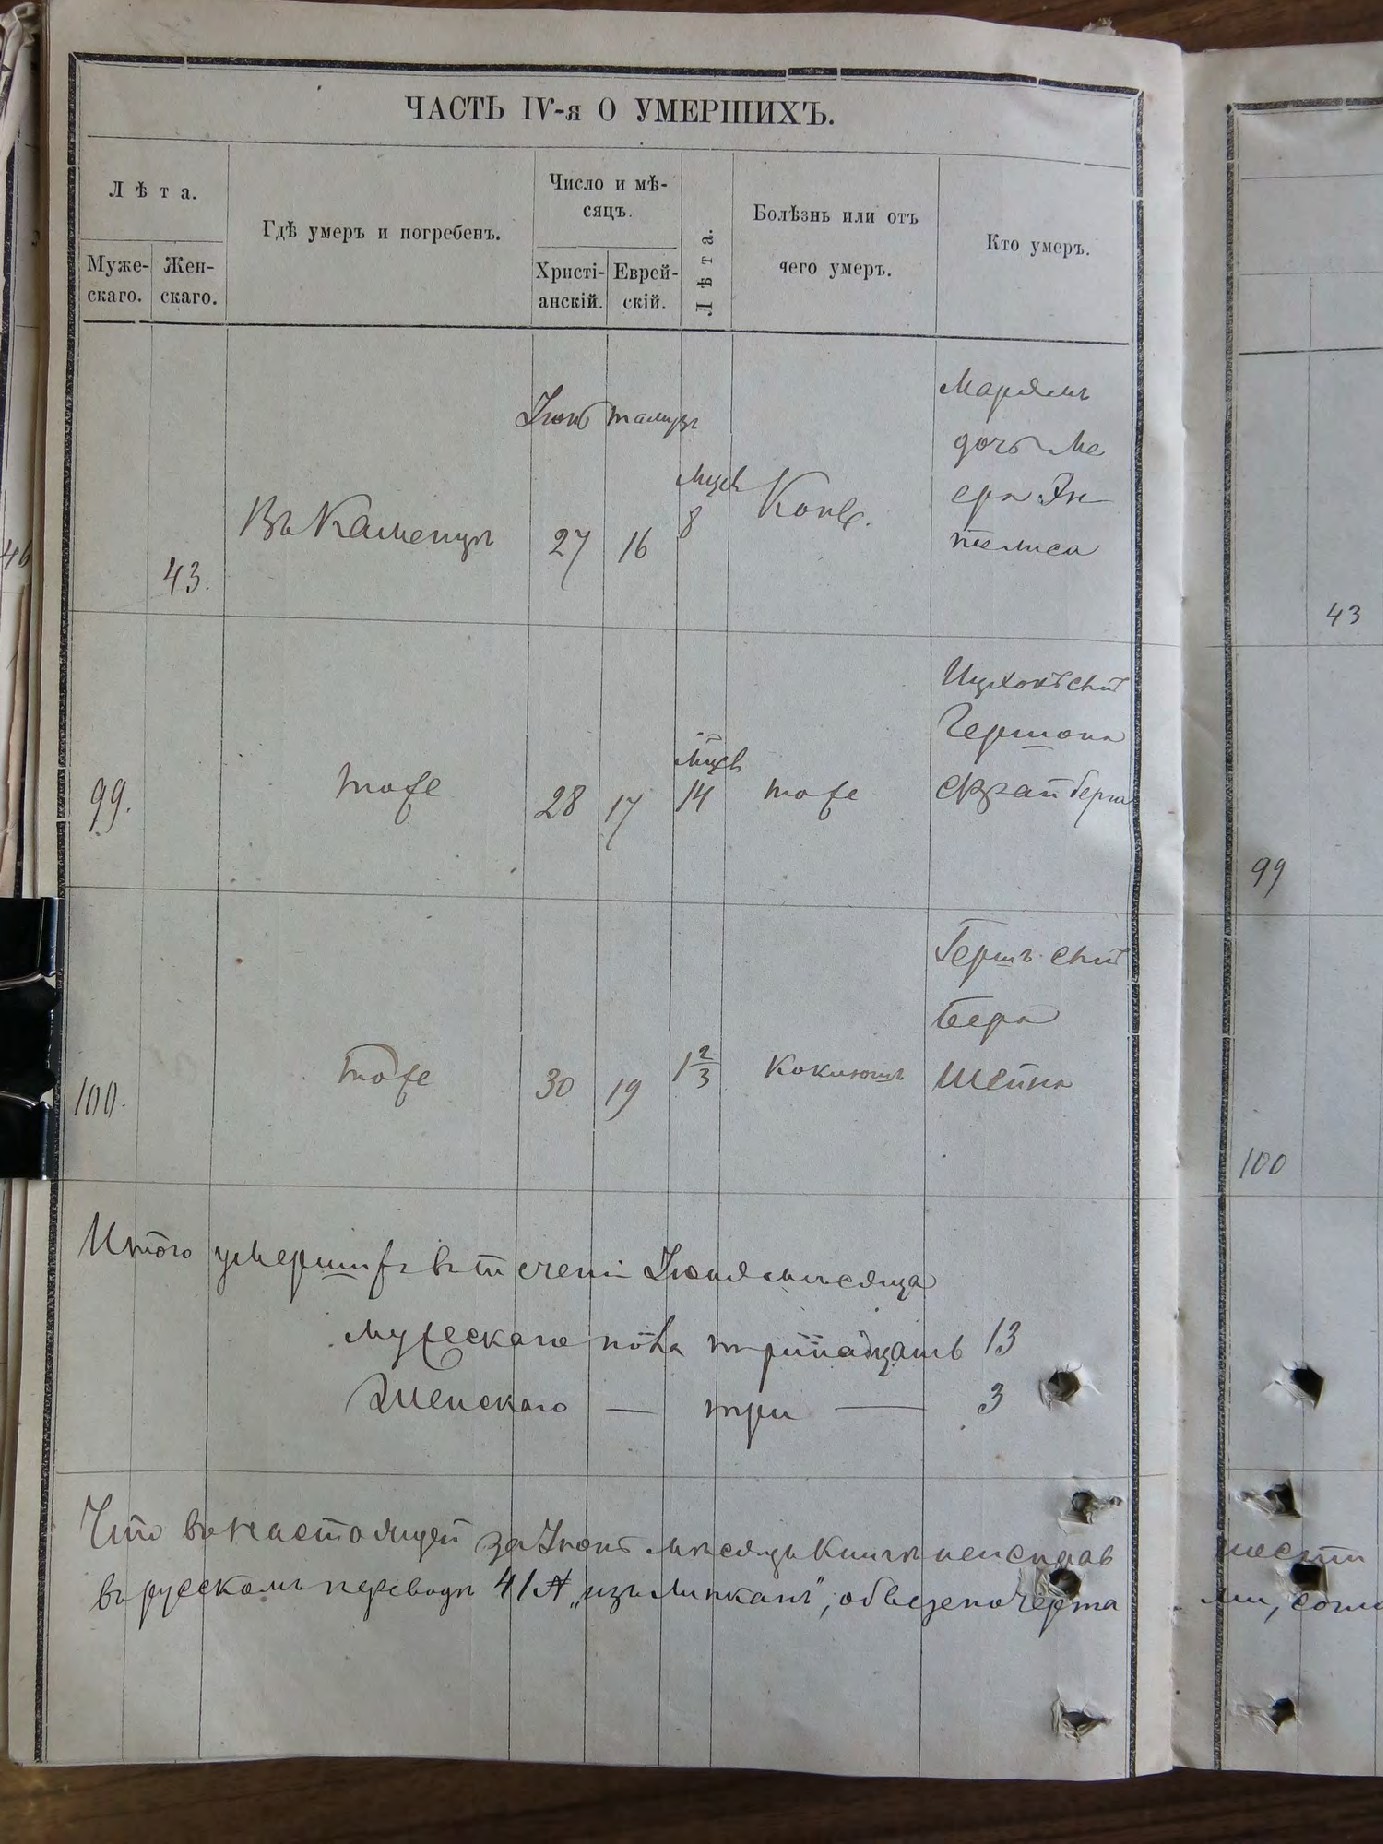 ЧАСТЬ IV-я О УМЕРШИХЪ.
Лѣта.
Муже-
скаго.
Жен-
скаго.
Гдѣ умеръ и погребенъ.
Число и мѣ-
сяцъ.
Христі-
анскій.
Еврей-
скій.
Лѣта.
Болѣзнь или отъ
чего умеръ.
Кто умеръ.
43.
Въ Каменцѣ
Іюнь
27
тамузъ
16
мцев
8
Конв.
Маріямъ
дочь Ме
ера
99.
тоже
28
17
мцев
14
тоже
Ицхокъ сынъ
Гершона
100.
тоже
30
19
1 2/3
Коклюшъ
Гершъ сынъ
Бера
Шейна
Итого умершихъ въ теченіи Іюня мѣсяца
мужескаго пола тринадцать 13
Женскаго — три — 3
Что въ настоящей за Іюнь мѣсяцъ Книгѣ неисправ
въ русскомъ переводѣ 41 „изъ обведено черта
46
43
99
100
ности
ми, согл